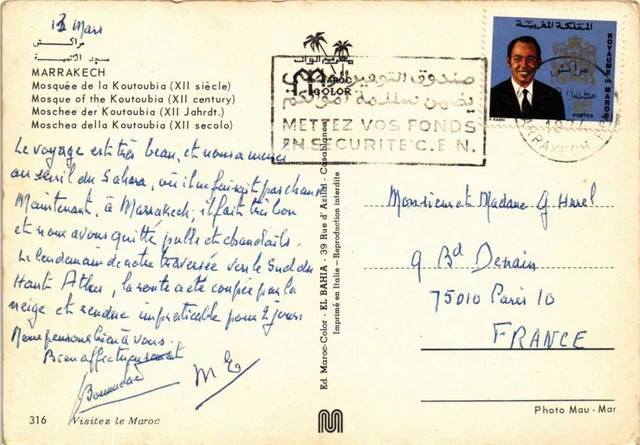 13 Mars
مراكش
MARRAKECH
Mosquée de la Koutoubia (XII siècle)
Mosque of the Koutoubia (XII century)
Moschee der Koutoubia (XII Jahrdt.)
Moschea della Koutoubia (XII secolo)
Le voyage est très beau, et nous a menés
au seuil du Sahara, où il ne faisait pas chaud
Maintenant, à Marrakech, il fait très bon
et nous avons quitté pulls et chandails.
Le lendemain de notre traversée vers le Sud du
Haut Atlas, la route a été coupée par la
neige et rendue impraticable pour 2 jours
Nous pensons bien à vous.
Bien affectueusement
M E
316 Visitez le Maroc
Ed. Maroc-Color - EL BAHIA - 39 Rue d'Azilal - Casablanca
Imprimé en Italie - Reproduction interdite
MAROC
COLOR
صندوق التوفير
يضمن سلامة أموالكم
METTEZ VOS FONDS
EN SECURITE C.E.N.
المملكة المغربية
ROYAUME DU MAROC
POSTES
MARRAKECH
Monsieur et Madame G Hurel
9 Bd Denain
75010 Paris 10
FRANCE
Photo Mau - Mar